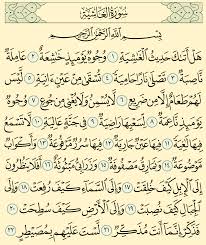 سُورَةُ الغَاشِيَةِ
بِسْمِ اللَّهِ الرَّحْمَٰنِ الرَّحِيمِ
هَلْ أَتَىٰكَ حَدِيثُ ٱلْغَٰشِيَةِ ١ وُجُوهٌ يَوْمَئِذٍ خَٰشِعَةٌ ٢ عَامِلَةٌ
نَّاصِبَةٌ ٣ تَصْلَىٰ نَارًا حَامِيَةً ٤ تُسْقَىٰ مِنْ عَيْنٍ ءَانِيَةٍ ٥ لَّيْسَ
لَهُمْ طَعَامٌ إِلَّا مِن ضَرِيعٍ ٦ لَّا يُسْمِنُ وَلَا يُغْنِى مِن جُوعٍ ٧ وُجُوهٌ
يَوْمَئِذٍ نَّاعِمَةٌ ٨ لِّسَعْيِهَا رَاضِيَةٌ ٩ فِى جَنَّةٍ عَالِيَةٍ ١٠ لَّا تَسْمَعُ
فِيهَا لَٰغِيَةً ١١ فِيهَا عَيْنٌ جَارِيَةٌ ١٢ فِيهَا سُرُرٌ مَّرْفُوعَةٌ ١٣ وَأَكْوَابٌ
مَّوْضُوعَةٌ ١٤ وَنَمَارِقُ مَصْفُوفَةٌ ١٥ وَزَرَابِىُّ مَبْثُوثَةٌ ١٦ أَفَلَا يَنظُرُونَ
إِلَى ٱلْإِبِلِ كَيْفَ خُلِقَتْ ١٧ وَإِلَى ٱلسَّمَآءِ كَيْفَ رُفِعَتْ ١٨ وَإِلَى
ٱلْجِبَالِ كَيْفَ نُصِبَتْ ١٩ وَإِلَى ٱلْأَرْضِ كَيْفَ سُطِحَتْ
٢٠ فَذَكِّرْ إِنَّمَآ أَنتَ مُذَكِّرٌ ٢١ لَّسْتَ عَلَيْهِم بِمُصَيْطِرٍ ٢٢